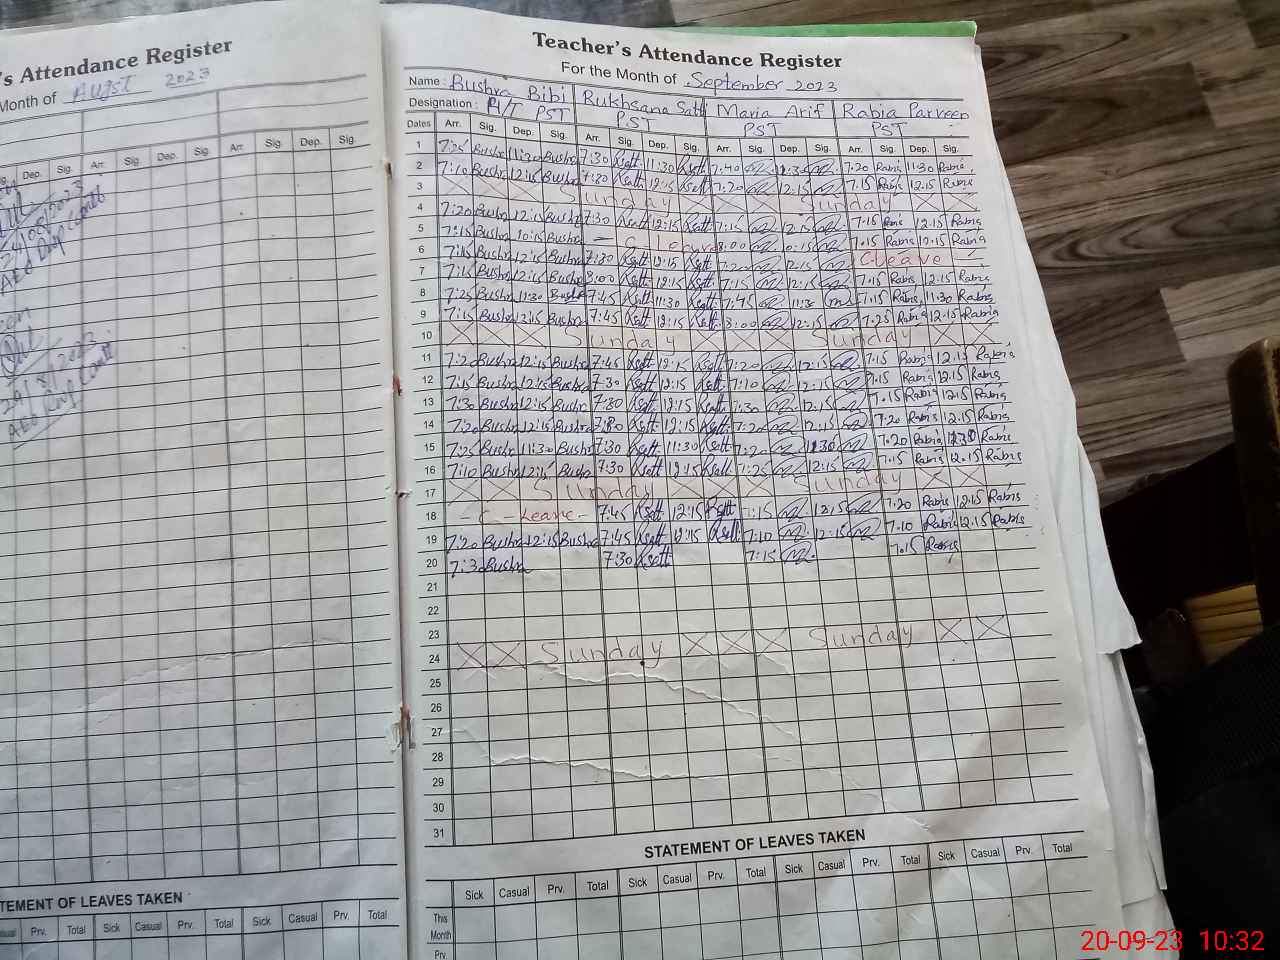 's Attendance Register
Month of Augst 2023
Arr. Sig. Dep. Sig. Arr. Sig. Dep. Sig.
Teacher's Attendance Register
For the Month of September 2023
Name : Bushra Bibi Rukhsana Satt Maria Arif Rabia Parveen
Designation : P/T PST PST PST PST
Dates Arr. Sig. Dep. Sig. Arr. Sig. Dep. Sig. Arr. Sig. Dep. Sig. Arr. Sig. Dep. Sig.
1 7:25 Bushra 11:30 Bushra 7:30 Rsatt 11:30 Rsatt 7:40 12:30 7.20 Rabis 11:30 Rabis
2 7:10 Bushra 12:15 Bushra 7:30 Rsatt 12:15 Rsatt 7:20 12:15 7.15 Rabis 12.15 Rabis
3 Sunday Sunday
4 7:20 Bushra 12:15 Bushra 7:30 Rsatt 12:15 Rsatt 7:15 12:15 7.15 Rabis 12.15 Rabis
5 7:15 Bushra 10:15 Bushra C Leave 8:00 7.15 Rabis 12.15 Rabis
6 7:15 Bushra 12:15 Bushra 7:30 Rsatt 12:15 Rsatt 7:20 12:15 C leave
7 7:15 Bushra 12:15 Bushra 8:00 Rsatt 12:15 Rsatt 7:15 12:15 7.15 Rabis 12.15 Rabis
8 7:25 Bushra 11:30 Bushra 7:45 Rsatt 11:30 Rsatt 7:45 11:30 7.15 Rabis 11.30 Rabis
9 7:15 Bushra 12:15 Bushra 7:45 Rsatt 12:15 Rsatt 8:00 12:15 7.25 Rabis 12.15 Rabis
10 Sunday Sunday
11 7:20 Bushra 12:15 Bushra 7:45 Rsatt 12:15 Rsatt 7:20 12:15 7.15 Rabis 12.15 Rabis
12 7:15 Bushra 12:15 Bushra 7:30 Rsatt 12:15 Rsatt 7:10 12:15 7.15 Rabis 12.15 Rabis
13 7:30 Bushra 12:15 Bushra 7:30 Rsatt 12:15 Rsatt 7:30 12:15 7.15 Rabis 12.15 Rabis
14 7:20 Bushra 12:15 Bushra 7:30 Rsatt 12:15 Rsatt 7:20 12:15 7.20 Rabis 12.15 Rabis
15 7:25 Bushra 11:30 Bushra 7:30 Rsatt 11:30 Rsatt 7:20 11:30 7.20 Rabis Rabis
16 7:10 Bushra 12:15 Bushra 7:30 Rsatt 12:15 Rsatt 7:25 12:15 7.15 Rabis 12.15 Rabis
17 Sunday Sunday
18 - C - Leave - 7:45 Rsatt 12:15 Rsatt 7:15 12:15 7.20 Rabis 12.15 Rabis
19 7:20 Bushra 12:15 Bushra 7:45 Rsatt 12:15 Rsatt 7:10 12:15 7.10 Rabis 12.15 Rabis
20 7:30 Bushra 7:30 Rsatt 7:15 7.15 Rabis
21
22
23
24 Sunday Sunday
25
26
27
28
29
30
31
STATEMENT OF LEAVES TAKEN
Sick Casual Prv. Total Sick Casual Prv. Total Sick Casual Prv. Total Sick Casual Prv. Total
This Month
Prv.
TEMENT OF LEAVES TAKEN
Prv. Total Sick Casual Prv. Total Sick Casual Prv. Total
20-09-23 10:32